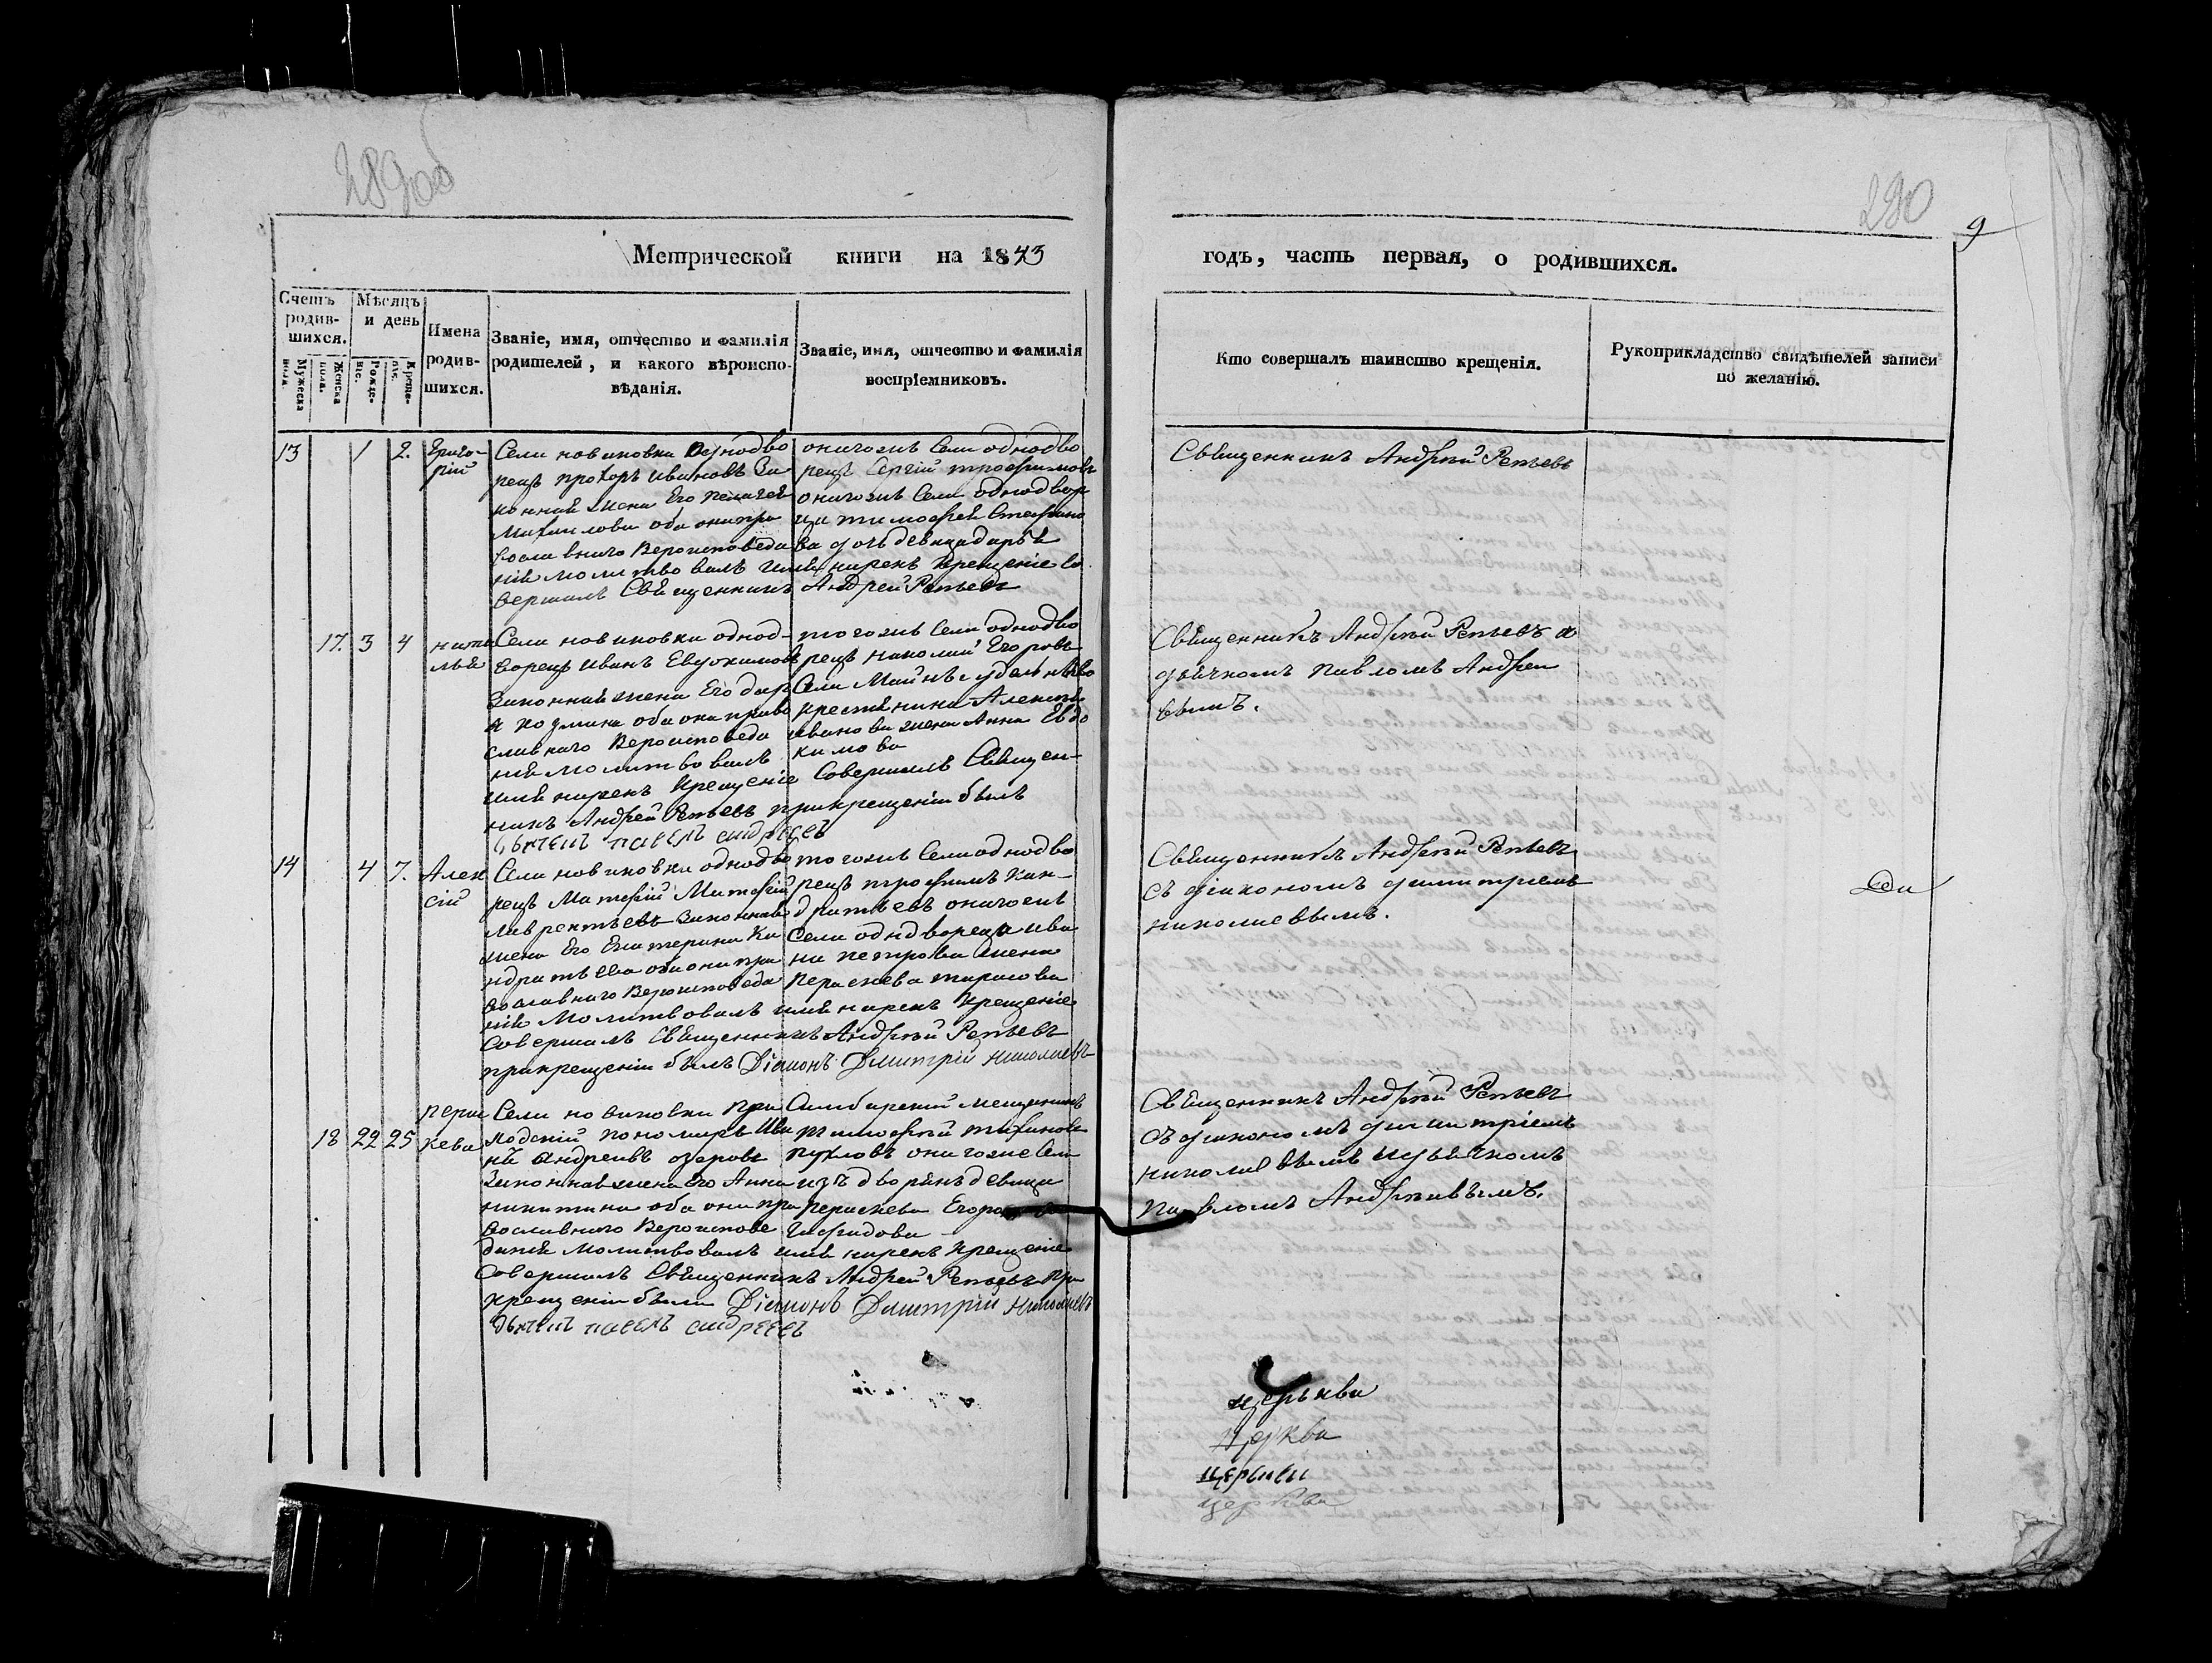 289об
290
9
Метрической книги на 1843
годъ, часть первая, о родившихся.
Счетъ родив-шихся.
Мужеска пола.
Женска пола.
Мѣсяцъ и день
Рожде-нie.
Креще-нie.
Имена родив-шихся.
Званіе, имя, отчество и фамилія родителей, и какого вѣроиспо-вѣданія.
Званіе, имя, отчество и фамилія воспріемниковъ.
Кто совершалъ таинство крещенія.
Рукоприкладство свидѣтелей записи по желанію.
13 1 2. Григо-
рій
Села новиковки Однодво
рецъ прохоръ Ивановъ За
конная жена Его пелагея
Михаилова оба они пра
вославнаго Вероисповеда
нія молитвовалъ имя нарекъ Крещеніе Со
вершалъ Священникъ Андрей Репьевъ
оногожъ Села однодво
рецъ Сергій трофимовъ
оногожъ Села однодвор
ца тимофея Стефано
ва дочь девица дарья
Священникъ Андрей Репьевъ
17. 3 4 ната
лья
Села новиковки однод-
ворецъ Иванъ Евдокимовъ
Законная жена Его дар
я козмина оба они право
славнаго Вероисповеда
нія молитвовалъ
имя нарекъ Крещеніе Совершалъ Священ-
никъ Андрей Репьевъ при крещеніи былъ
дьячекъ павелъ андреевъ
тогожъ Села однодво
рецъ николай Егоровъ
Села Маинъ удельнаво
крестьянина Алексея
иванова жена Анна Евдо
кимова
Священникъ Андрей Репьевъ с
дьячкомъ павломъ Андрее
вымъ.
14 4 7. Алек
сій
Села новиковки однодво
рецъ Матфій
Лаврентьевъ Законная
жена Его Екатерина Ка
ндратьева оба они пра
вославнаго Вероисповеда
нія Молитвовалъ имя нарекъ Крещеніе
Совершалъ Священникъ Андрей Репьевъ
при крещеніи былъ Діаконъ Дмитрій николаевъ
тогожъ Села однодво
рецъ трофимъ Кан-
дратьевъ оногожъ
Села однодворца ива
на петрова жена
Параскева тарасова
Священникъ Андрей Репьевъ
съ діакономъ димитріемъ
николаевымъ.
18 22 25 пара
кева
Села новиковки При
ходскій пономарь Ива
нъ Андреевъ озеровъ
Законная жена Его Анна
никитина оба они пра
вославнаго Вероиспове
данія молитвовалъ имя нарекъ Крещеніе
Совершалъ Священникъ Андрей Репьевъ при
крещеніи были Діаконъ Дмитрій николаевъ
дьячекъ павелъ андреевъ
Симбирский мещанинъ
тимофей тихановъ
пухловъ оногоже Села
изъ дворянъ девица
параскева Егорова
Священникъ Андрей Репьевъ
съ діакономъ димитріемъ
николаевымъ и дьячкомъ
павломъ Андреевымъ.
церьква
церква
церькви
церква